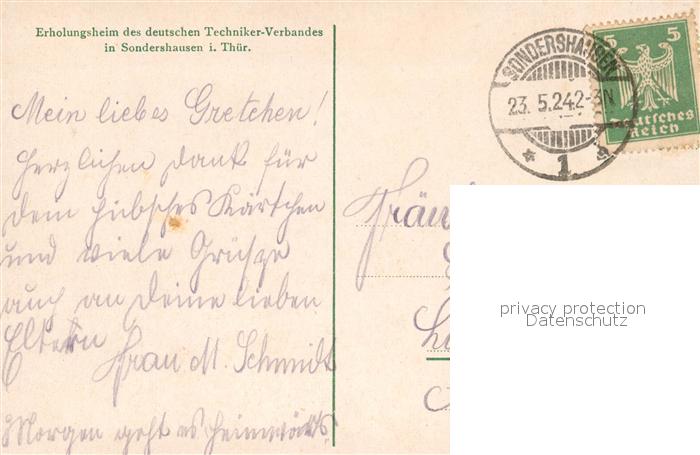 Erholungsheim des deutschen Techniker-Verbandes
in Sondershausen i. Thür.
Mein liebes Gretchen!
Herzlichen Dank für
dem hübsches Kärtchen
und viele Grüsze
auch an Deine lieben
Eltern
Frau M. Schmidt
Morgen geht es heimwärts
SONDERSHAUSEN
23. 5.24.2-3N
* 1 a
5 5
Deutsches
Reich
Fräul
privacy protection
Datenschutz